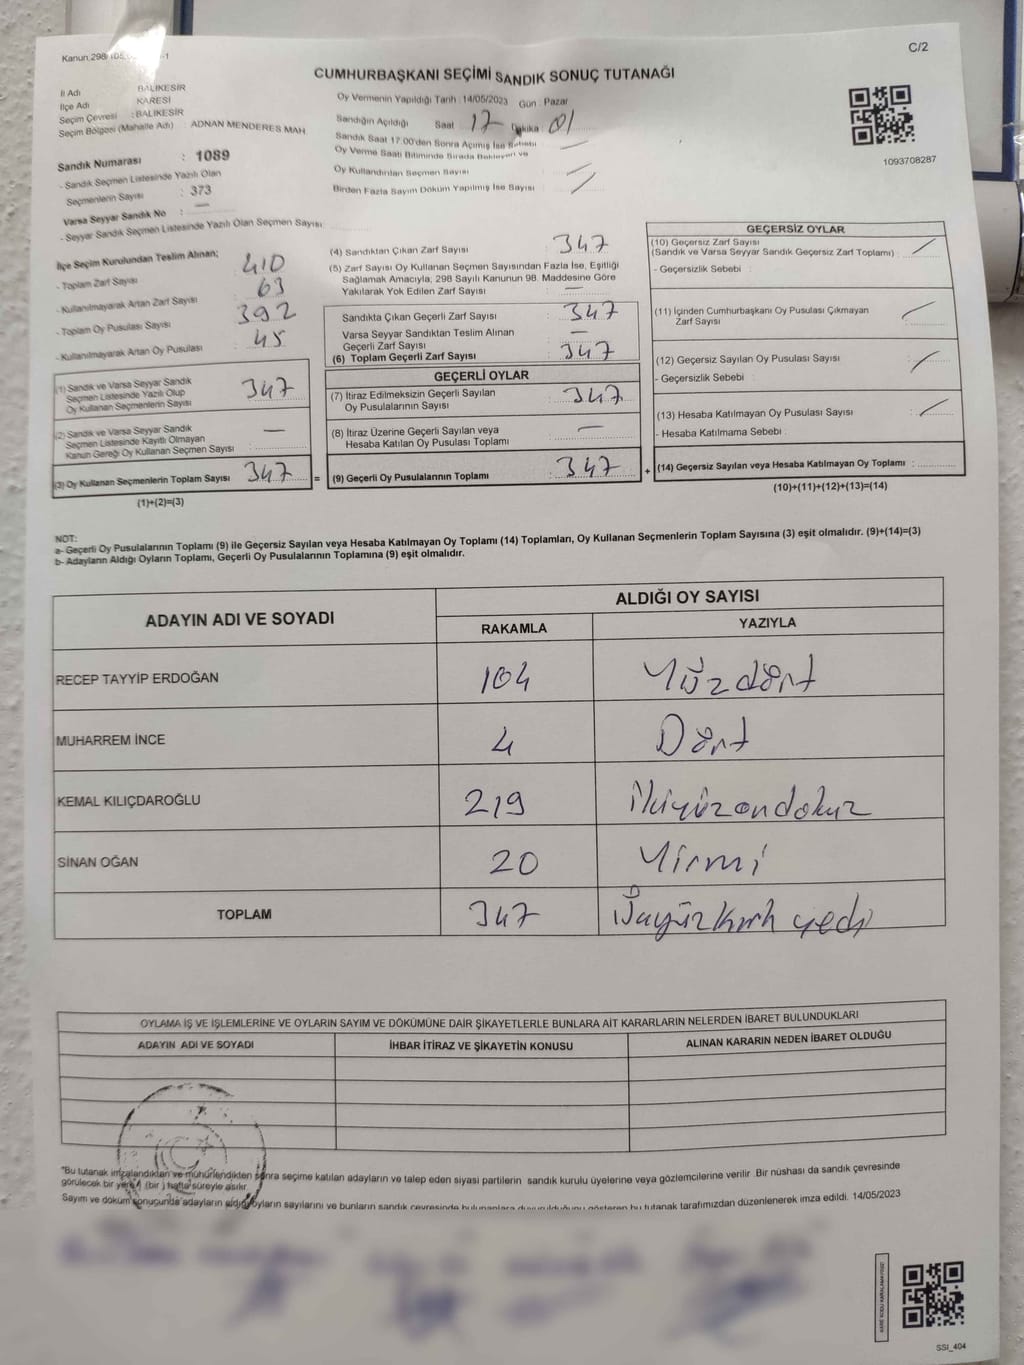 C/2
Kanun:298/105
CUMHURBAŞKANI SEÇİMİ SANDIK SONUÇ TUTANAĞI
İl Adı BALIKESİR
İlçe Adı KARESİ
Seçim Çevresi : BALIKESİR
Seçim Bölgesi (Mahalle Adı) : ADNAN MENDERES MAH.
Sandık Numarası : 1089
- Sandık Seçmen Listesinde Yazılı Olan
Seçmenlerin Sayısı : 373
Varsa Seyyar Sandık No : —
- Seyyar Sandık Seçmen Listesinde Yazılı Olan Seçmen Sayısı:
Oy Vermenin Yapıldığı Tarih : 14/05/2023 Gün : Pazar
Sandığın Açıldığı Saat 17 Dakika : 01
Sandık Saat 17.00'den Sonra Açılmış İse Sebebi
Oy Verme Saati Bitiminde Sırada Bekleyen ve
Oy Kullandırılan Seçmen Sayısı
Birden Fazla Sayım Döküm Yapılmış İse Sayısı
1093708287
İlçe Seçim Kurulundan Teslim Alınan;
- Toplam Zarf Sayısı 410
- Kullanılmayarak Artan Zarf Sayısı 63
- Toplam Oy Pusulası Sayısı 392
- Kullanılmayarak Artan Oy Pusulası 45
(1) Sandık ve Varsa Seyyar Sandık
Seçmen Listesinde Yazılı Olup
Oy Kullanan Seçmenlerin Sayısı 347
(2) Sandık ve Varsa Seyyar Sandık
Seçmen Listesinde Kayıtlı Olmayan
Kanun Gereği Oy Kullanan Seçmen Sayısı —
(3) Oy Kullanan Seçmenlerin Toplam Sayısı 347 =
(1)+(2)=(3)
(4) Sandıktan Çıkan Zarf Sayısı 347
(5) Zarf Sayısı Oy Kullanan Seçmen Sayısından Fazla İse, Eşitliği
Sağlamak Amacıyla; 298 Sayılı Kanunun 98. Maddesine Göre
Yakılarak Yok Edilen Zarf Sayısı : —
Sandıkta Çıkan Geçerli Zarf Sayısı : 347
Varsa Seyyar Sandıktan Teslim Alınan
Geçerli Zarf Sayısı : —
(6) Toplam Geçerli Zarf Sayısı : 347
GEÇERLİ OYLAR
(7) İtiraz Edilmeksizin Geçerli Sayılan
Oy Pusulalarının Sayısı : 347
(8) İtiraz Üzerine Geçerli Sayılan veya
Hesaba Katılan Oy Pusulası Toplamı : —
(9) Geçerli Oy Pusulalarının Toplamı : 347 +
GEÇERSİZ OYLAR
(10) Geçersiz Zarf Sayısı
(Sandık ve Varsa Seyyar Sandık Geçersiz Zarf Toplamı) :
- Geçersizlik Sebebi :
(11) İçinden Cumhurbaşkanı Oy Pusulası Çıkmayan
Zarf Sayısı
(12) Geçersiz Sayılan Oy Pusulası Sayısı
- Geçersizlik Sebebi :
(13) Hesaba Katılmayan Oy Pusulası Sayısı :
- Hesaba Katılmama Sebebi :
(14) Geçersiz Sayılan veya Hesaba Katılmayan Oy Toplamı :
(10)+(11)+(12)+(13)=(14)
NOT:
a- Geçerli Oy Pusulalarının Toplamı (9) ile Geçersiz Sayılan veya Hesaba Katılmayan Oy Toplamı (14) Toplamları, Oy Kullanan Seçmenlerin Toplam Sayısına (3) eşit olmalıdır. (9)+(14)=(3)
b- Adayların Aldığı Oyların Toplamı, Geçerli Oy Pusulalarının Toplamına (9) eşit olmalıdır.
ADAYIN ADI VE SOYADI
ALDIĞI OY SAYISI
RAKAMLA YAZIYLA
RECEP TAYYİP ERDOĞAN 104 Yüzdört
MUHARREM İNCE 4 Dört
KEMAL KILIÇDAROĞLU 219 İkiyüzondokuz
SİNAN OĞAN 20 Yirmi
TOPLAM 347 Üçyüzkırk yedi
OYLAMA İŞ VE İŞLEMLERİNE VE OYLARIN SAYIM VE DÖKÜMÜNE DAİR ŞİKAYETLERLE BUNLARA AİT KARARLARIN NELERDEN İBARET BULUNDUKLARI
ADAYIN ADI VE SOYADI İHBAR İTİRAZ VE ŞİKAYETİN KONUSU ALINAN KARARIN NEDEN İBARET OLDUĞU
"Bu tutanak imzalandıktan ve mühürlendikten sonra seçime katılan adayların ve talep eden siyasi partilerin sandık kurulu üyelerine veya gözlemcilerine verilir .Bir nüshası da sandık çevresinde
görülecek bir yere 1 (bir ) hafta süreyle asılır.
Sayım ve döküm sonucunda adayların aldığı oyların sayılarını ve bunların sandık çevresinde bulunanlara duyurulduğunu gösteren bu tutanak tarafımızdan düzenlenerek imza edildi. 14/05/2023
SSİ_404